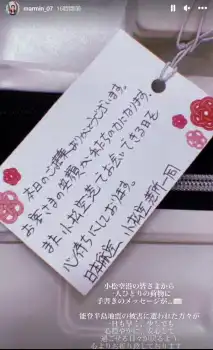 marmin_07 16時間前
本日のご搭乗ありがとうございます。
お客さまの笑顔が私たちの力になります。
また小松空港でお会いできる日を
心待ちにしております。
日本航空 小松空港所一同
小松空港の皆さまから
一人ひとりの荷物に
手書きのメッセージが...
能登半島地震の被災に遭われた方々が
一日も早く、少しでも
心穏やかに、安心して
過ごせる日々が戻るよう
心よりお祈り致しております